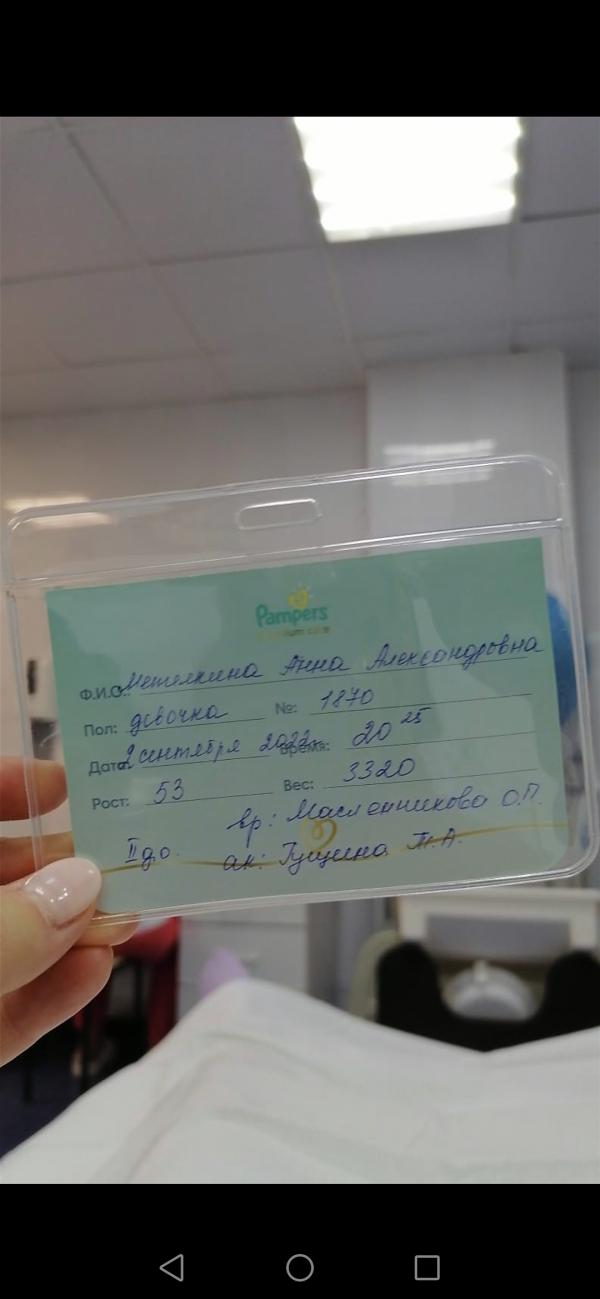 Pampers
premium care
Ф.И.О.: Метелкина Анна Александровна
Пол: девочка №: 1870
Дата: 2 сентября 2022г. Время: 20 25
Рост: 53 Вес: 3320
вр: Масленникова О.П.
II д.о. ак: Гущина Т.А.